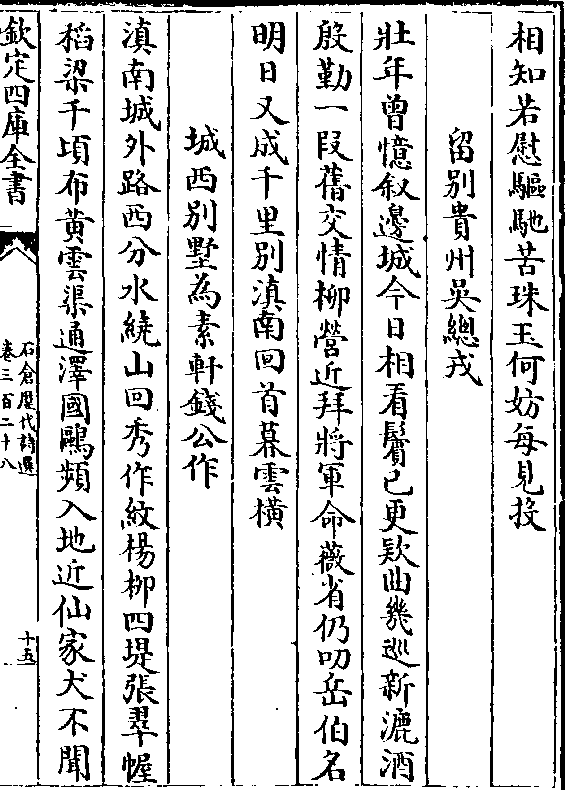 相知若慰驅馳苦珠玉何妨每見投
留别貴州吳總戎
壯年曾憶叙邊城今日相看鬢已更欵曲幾巡新漉酒
殷勤一段舊交情柳營近拜將軍命薇省仍叨岳伯名
明日又成千里别滇南回首暮雲橫
城西别墅為素軒錢公作
滇南城外路西分水繞山回秀作紋楊柳四堤張翠幄
稻梁千頃布黄雲渠通澤國鷗頻入地近仙家犬不聞
欽定四庫全書
石倉歷代詩選
卷三百二十八
十五